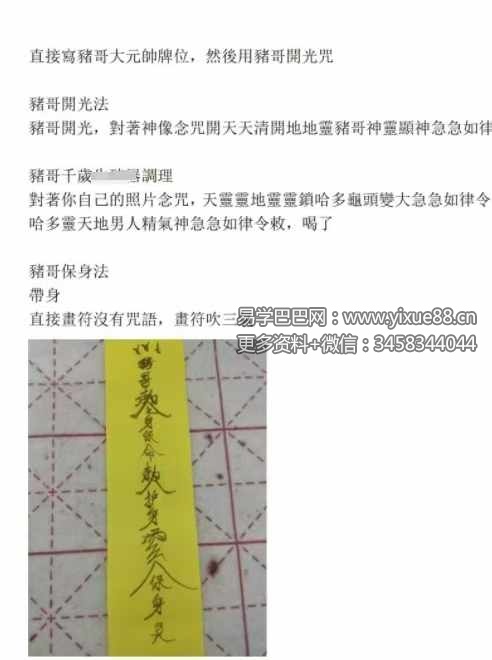 直接寫豬哥大元帥牌位，然後用豬哥開光咒
豬哥開光法
豬哥開光，對著神像念咒開天天清開地地靈豬哥神靈顯神急急如律
豬哥千歲調理
對著你自己的照片念咒，天靈靈地靈靈鎖哈多龜頭變大急急如律令
哈多靈天地男人精氣神急急如律令敕，喝了
豬哥保身法
帶身
直接畫符沒有咒語，畫符吹三
易学巴巴网：www.yixue88.cn
更多资料+微信：3458344044
豬哥
勅
身保命
勅
护身
保身